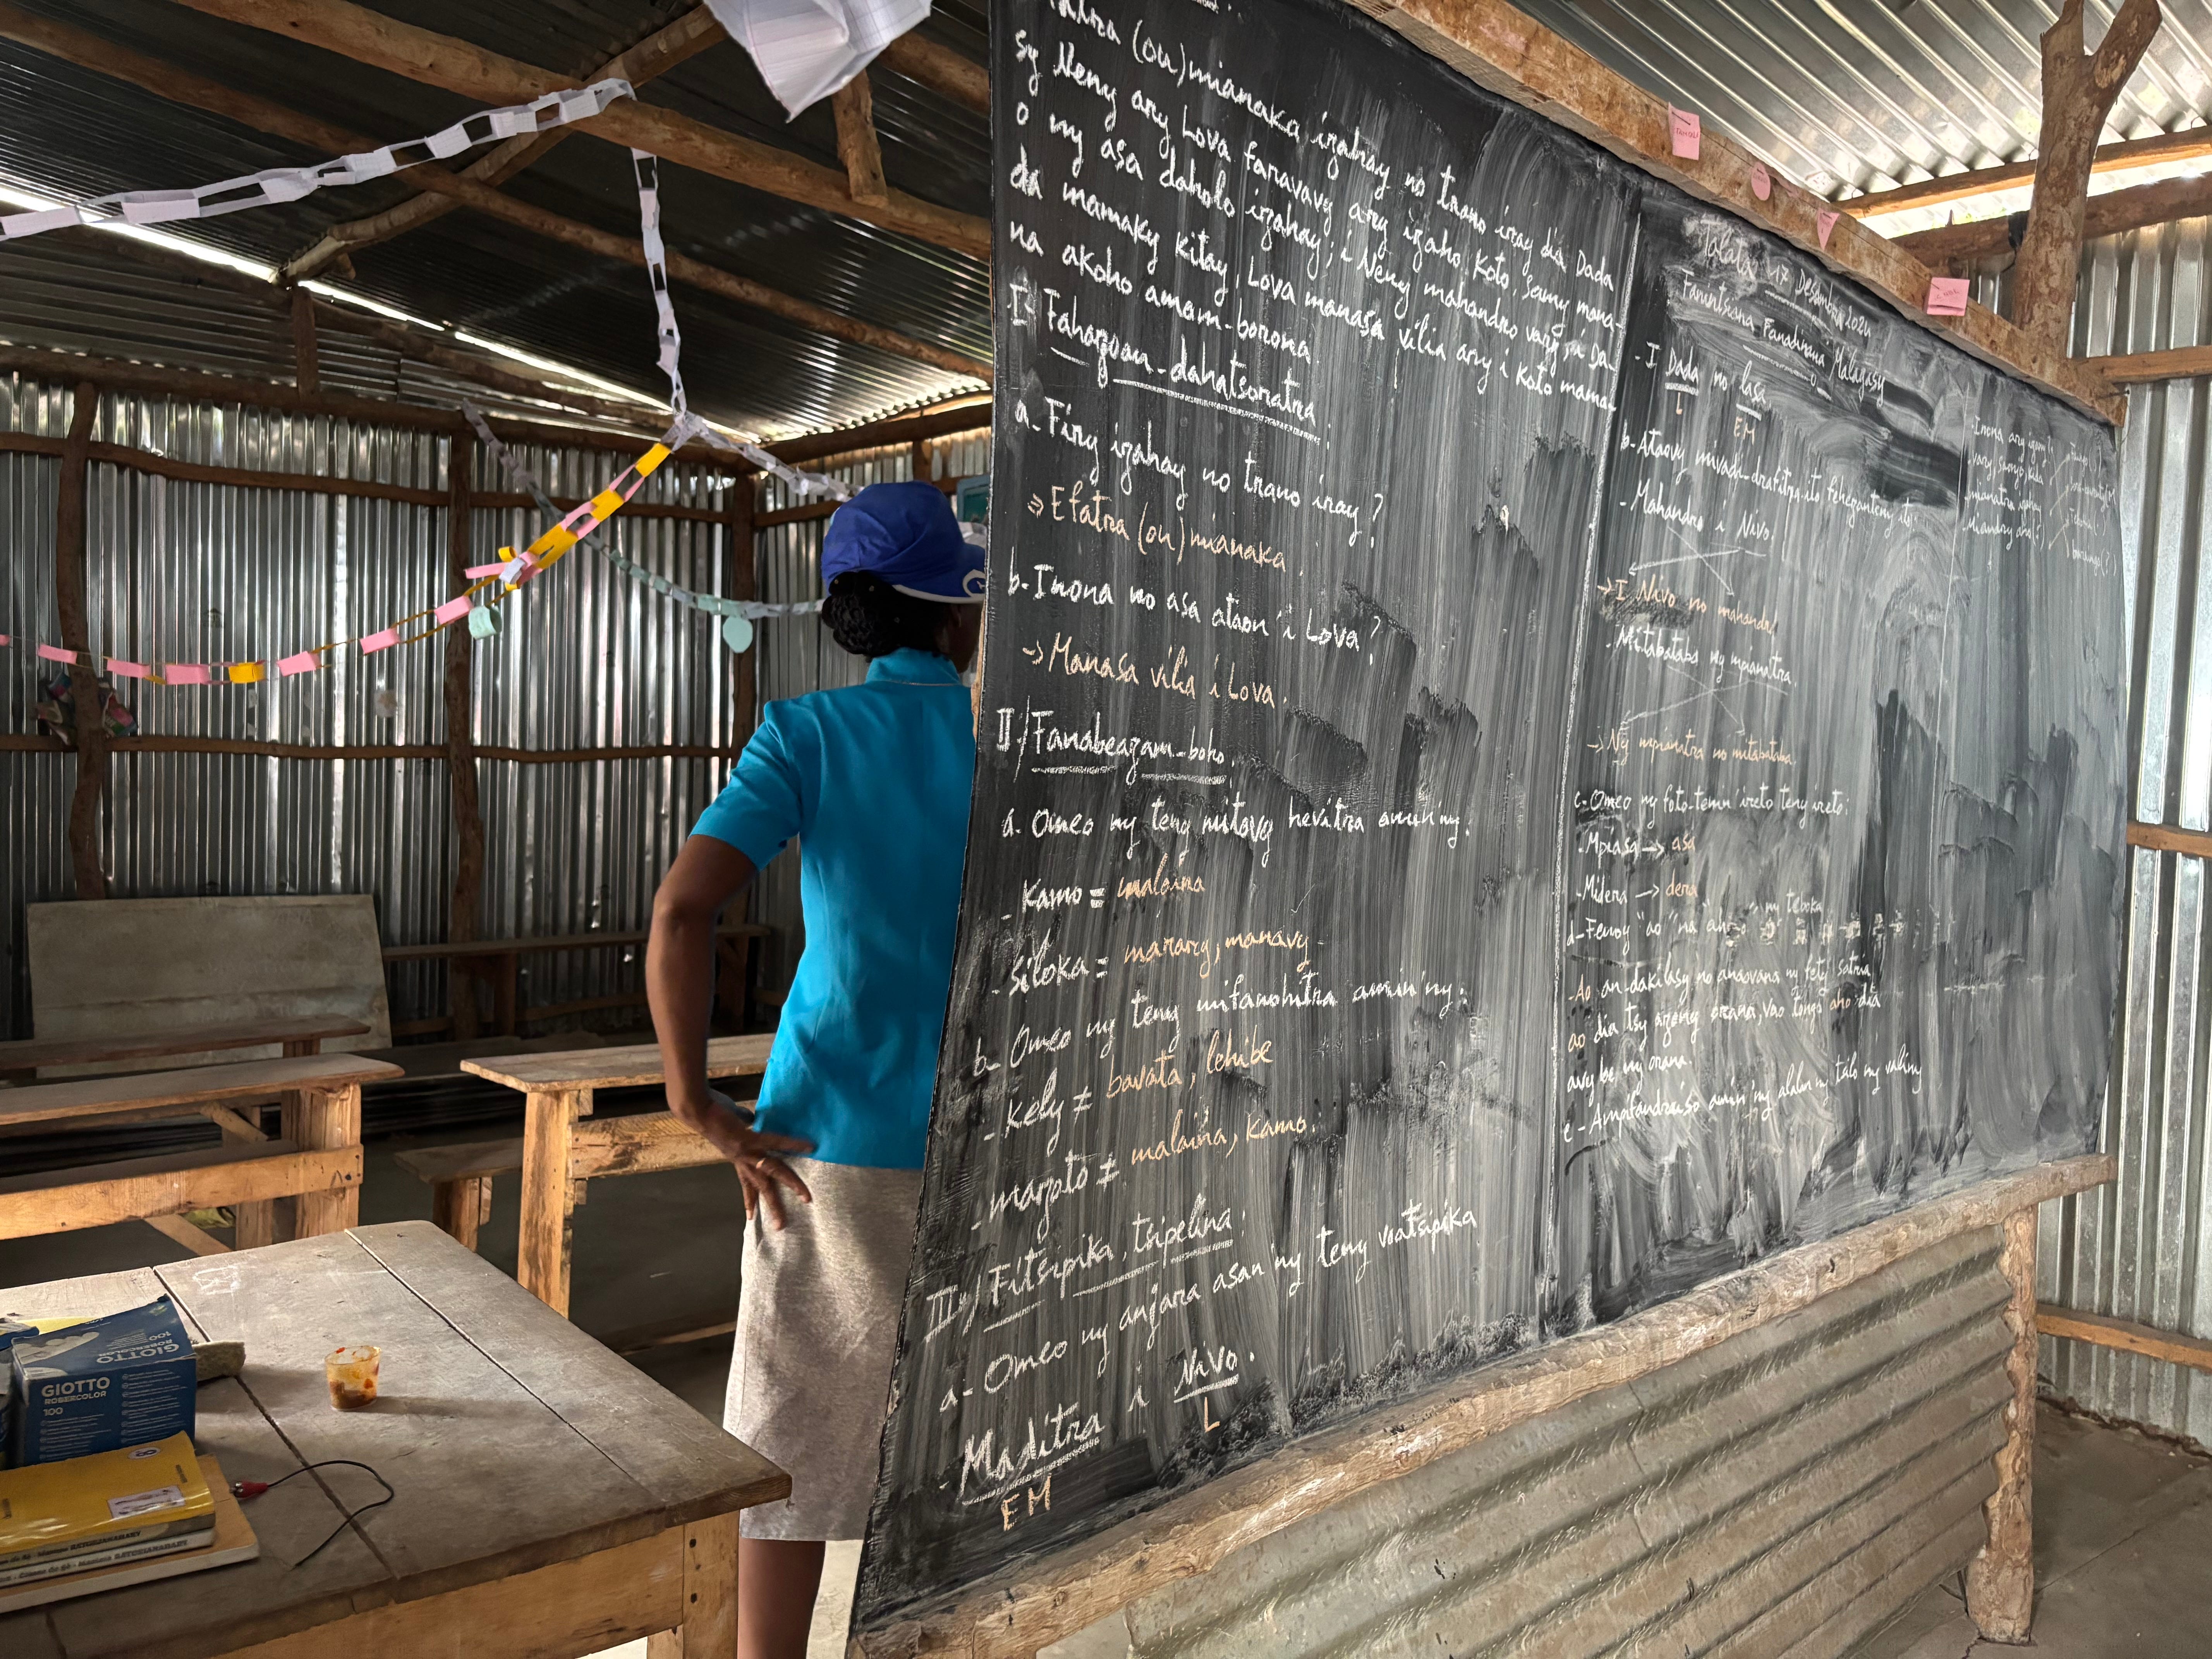 (ou) mianaka izahay no trano iray dia Dada
sy Neny ary Lova faravavy ary izaho, Koto. Samy mana-
o ny asa daholo izahay; i Neny mahandro vary, i Da-
da mamaky kitay, Lova manasa vilia ary i Koto mama-
na akoho amam-borona.
I- Fahazoan-dahatsoratra:
a- Firy izahay no trano iray?
⇒ Efatra (ou) mianaka.
b- Inona no asa ataon'i Lova?
→ Manasa vilia i Lova.
II-/ Fanabeazam-boho.
a- Omeo ny teny mitovy hevitra amin'ny:
- Kamo = malaina
- Siloka = marary, manavy
b- Omeo ny teny mifanohitra amin'ny:
- Kely ≠ bavata, lehibe
- mazoto ≠ malaina, kamo.
III-/ Fitsipika, tsipelina:
a- Omeo ny anjara asan'ny teny voatsipika
Maditra i Nivo.
EM L
Talata 17 Desambra 2024
Fanitsiana Fanadinana Malagasy
- I Dada no lasa
L EM
b- Ataovy mivadi-drafitra ito fehezanteny ito:
- Mahandro i Nivo.
→ I Nivo no mahandro
- Mitabataba ny mpianatra.
→ Ny mpianatra no mitabataba
c- Omeo ny foto-tenin'ireto teny ireto:
- Mpiasa → asa
- Midera → dera
d- Fenoy "ao" na "aho" ny teboka
- Ao an-dakilasy no anaovana ny fety satria
ao dia tsy azeny orana, vao tonga aho dia
avy be ny orana.
e- Ampifandraiso amin'ny alalan'ny talo ny valiny
GIOTTO
ROBERCOLOR
100
GIOTTO
ROBERCOLOR
100